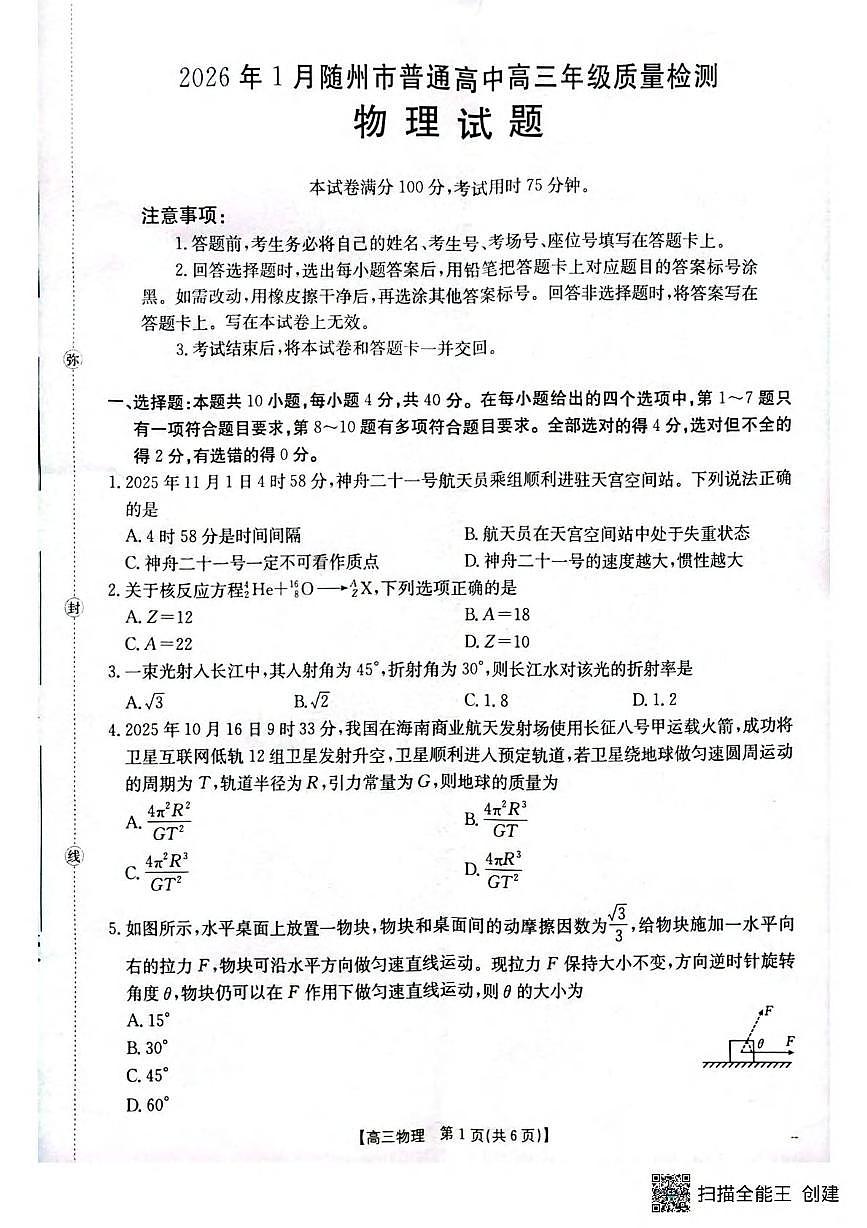 2026 年 1 月随州市普通高中高三年级质量检测
物理试题
本试卷满分 100 分,考试用时 75 分钟。
注意事项:
1. 答题前,考生务必将自己的姓名、考生号、考场号、座位号填写在答题卡上。
2. 回答选择题时,选出每小题答案后,用铅笔把答题卡上对应题目的答案标号涂
黑。如需改动,用橡皮擦干净后,再选涂其他答案标号。回答非选择题时,将答案写在
答题卡上。写在本试卷上无效。
3. 考试结束后,将本试卷和答题卡一并交回。
弥
一、选择题:本题共 10 小题,每小题 4 分,共 40 分。在每小题给出的四个选项中,第 1～7 题只
有一项符合题目要求,第 8～10 题有多项符合题目要求。全部选对的得 4 分,选对但不全的
得 2 分,有选错的得 0 分。
1. 2025 年 11 月 1 日 4 时 58 分,神舟二十一号航天员乘组顺利进驻天宫空间站。下列说法正确
的是
A. 4 时 58 分是时间间隔 B. 航天员在天宫空间站中处于失重状态
C. 神舟二十一号一定不可看作质点 D. 神舟二十一号的速度越大,惯性越大
2. 关于核反应方程⁴₂He+¹⁶₈O⟶ᴬ_ZX,下列选项正确的是
封
A. Z=12 B. A=18
C. A=22 D. Z=10
3. 一束光射入长江中,其入射角为 45°,折射角为 30°,则长江水对该光的折射率是
A. √3 B. √2 C. 1.8 D. 1.2
4. 2025 年 10 月 16 日 9 时 33 分,我国在海南商业航天发射场使用长征八号甲运载火箭,成功将
卫星互联网低轨 12 组卫星发射升空,卫星顺利进入预定轨道,若卫星绕地球做匀速圆周运动
的周期为 T,轨道半径为 R,引力常量为 G,则地球的质量为
A. 4π²R²/GT² B. 4π²R³/GT
线
C. 4π²R³/GT² D. 4πR³/GT²
5. 如图所示,水平桌面上放置一物块,物块和桌面间的动摩擦因数为√3/3,给物块施加一水平向
右的拉力 F,物块可沿水平方向做匀速直线运动。现拉力 F 保持大小不变,方向逆时针旋转
角度 θ,物块仍可以在 F 作用下做匀速直线运动,则 θ 的大小为
A. 15°
B. 30°
C. 45°
D. 60°
F
θ F
【高三物理 第 1 页(共 6 页)】
扫描全能王 创建